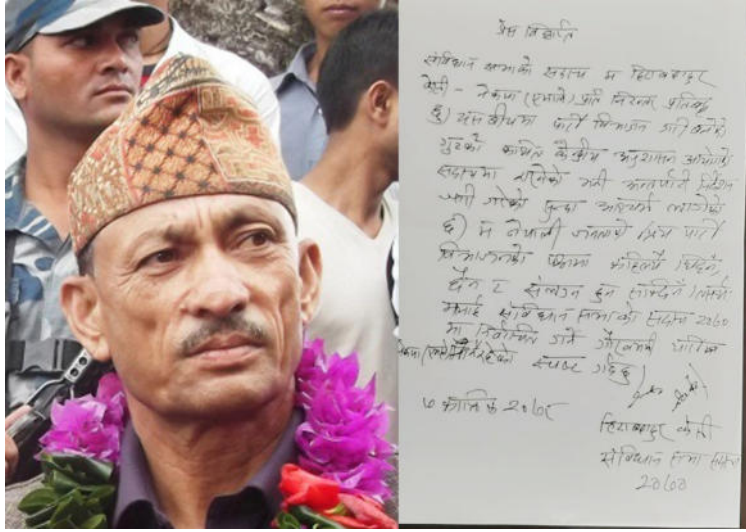 प्रेस विज्ञप्ति
संविधान सभाको सदस्य म हिराबहादुर
केसी – नेकपा (एमाले) प्रति निरन्तर प्रतिबद्ध
छु। यस बीचमा पार्टी विभाजन गरी बनेको
गुटको केन्द्रीय अनुशासन आयोगको
सदस्यमा भनी
जारी गरेको सुन्दा आश्चर्य लागेको
छ। म नेपाली जनताको प्रिय पार्टी
विभाजनको पक्षमा कहिल्यै थिइनँ,
छैन र संलग्न हुन सक्दिनँ।
मलाई संविधान सभाको सदस्य २०७०
मा निर्वाचित गर्ने गौरवमयी पार्टीमा
स्पष्ट गर्दछु।
७ कार्तिक २०७८
हिराबहादुर केसी
संविधान सभा सदस्य
२०७०